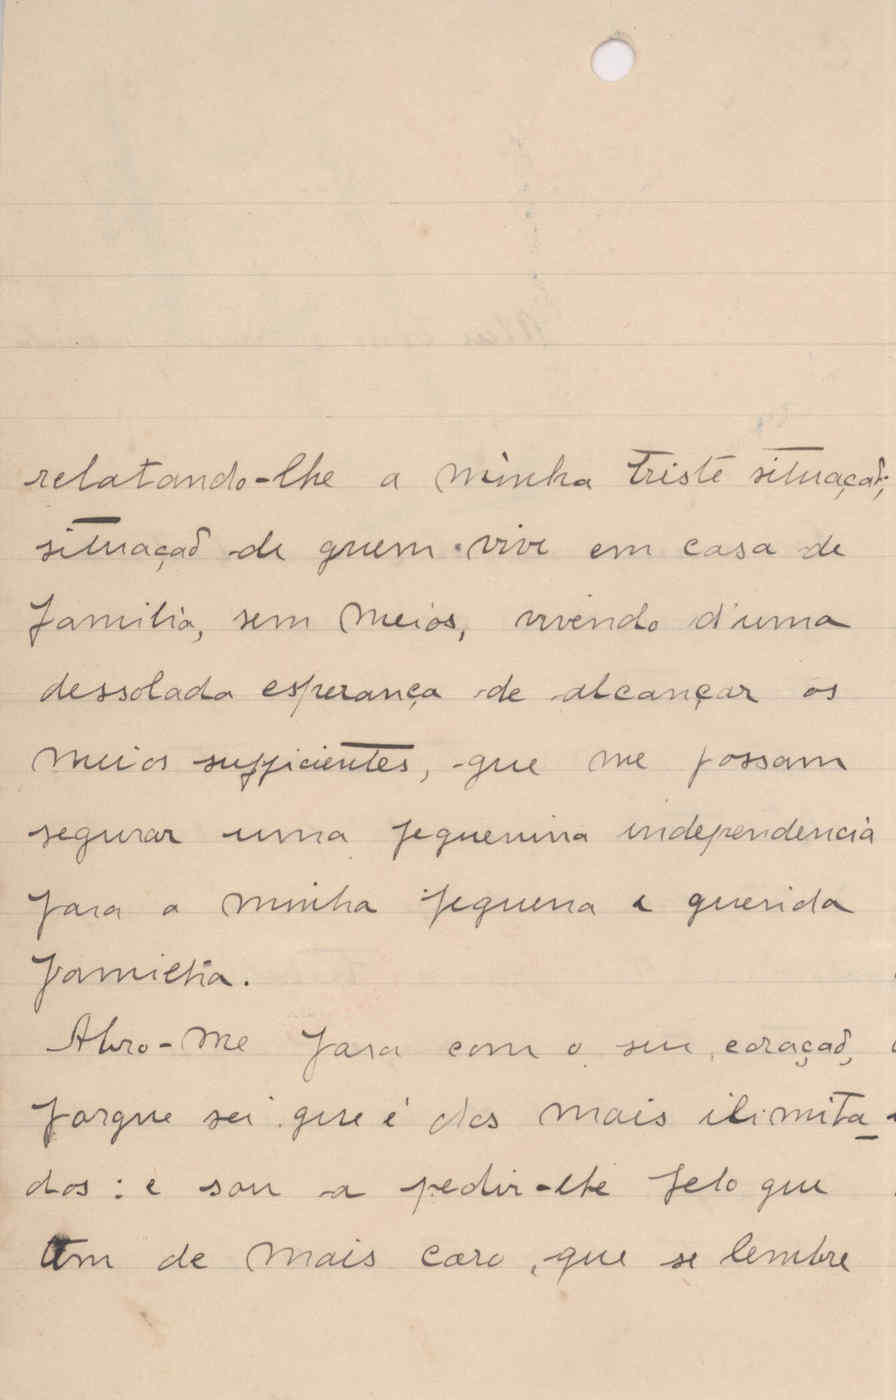 relatando-lhe a minha triste situação;
situação de quem vive em casa de
familia, sem meios, vivendo d'uma
dessolada esperança de alcançar os
meios sufficientes, que me possam
segurar uma pequenina independencia
para a minha pequena e querida
familia.
Abro-me para com o seu coração,
porque sei que é dos mais ilimita-
dos: e sou a pedir-lhe pelo que
tem de mais caro, que se lembre